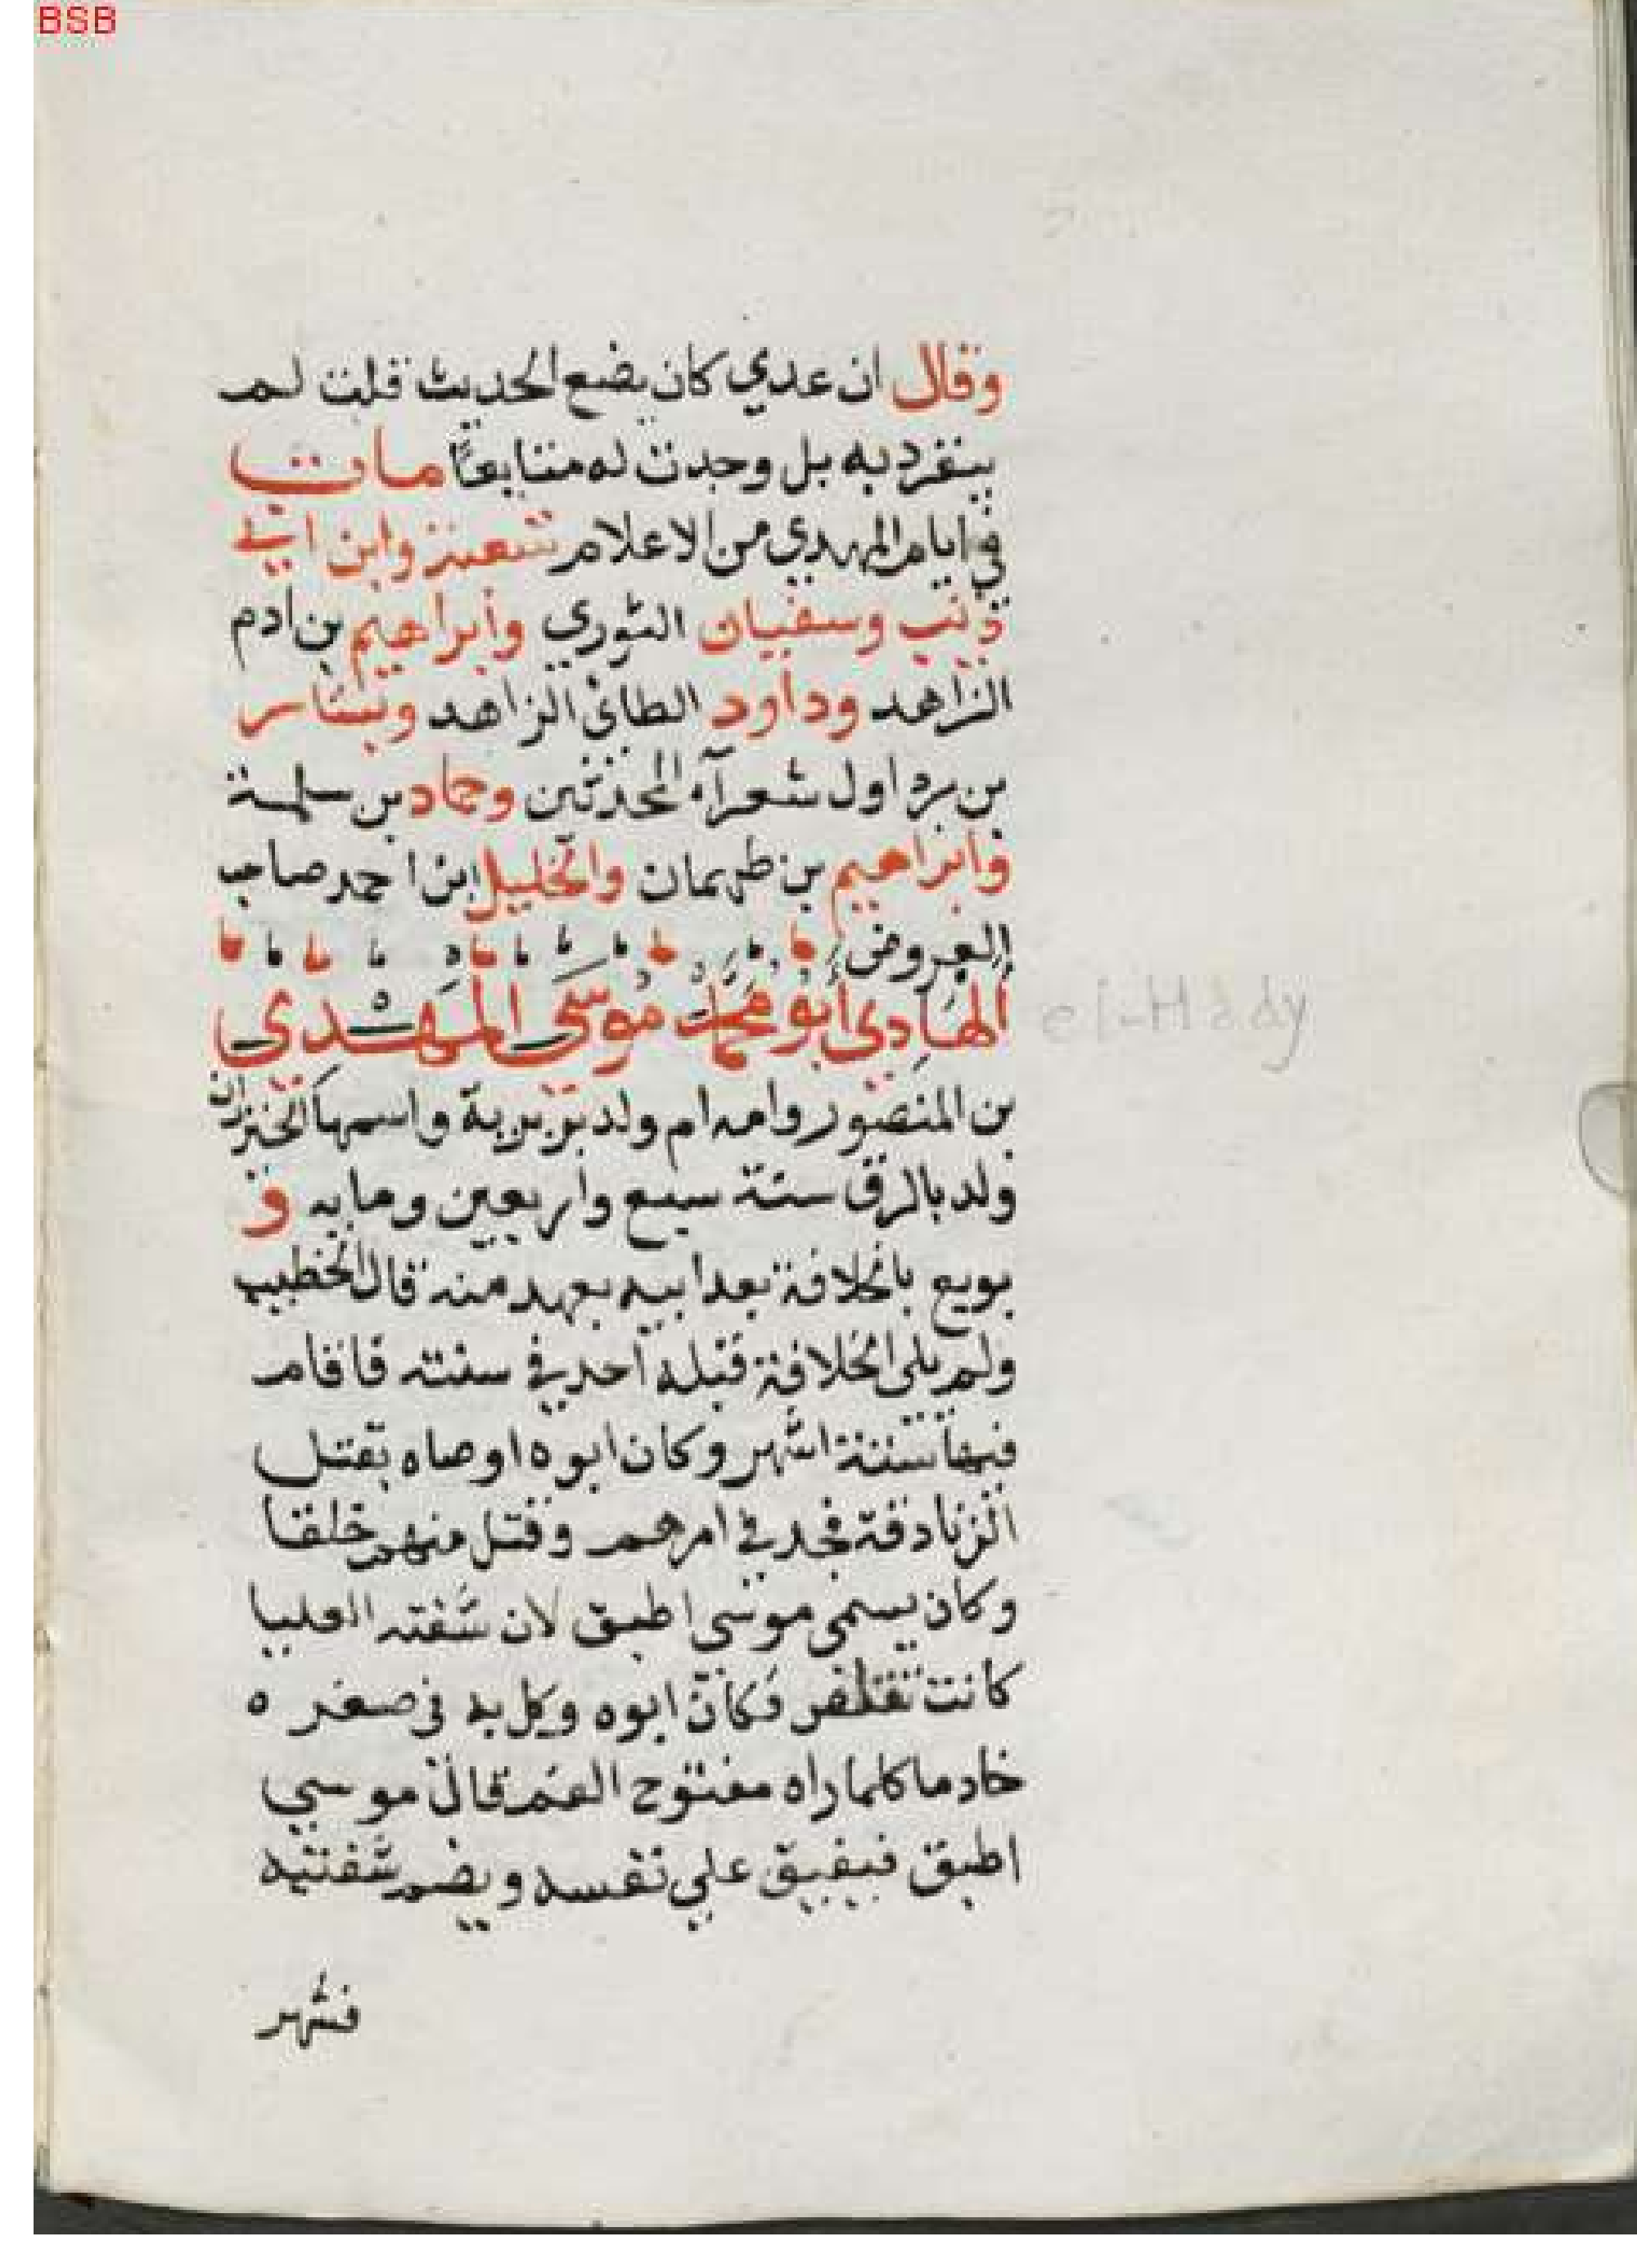 BSB
وقال ان عدي كان يضع الحديث قلت لم
ينفرد به بل وجدت له متابعًا مات
في ايام المهدي من الاعلام شعبة وابن ابي
ذئب وسفيان الثوري وابراهيم بن ادم
الزاهد وداود الطائي الزاهد وبشار
بن برد اول شعرآء المحدثين وحماد بن سلمة
وابراهيم بن طهمان والخليل ابن احمد صاحب
العروض
الهادي أبو محمد موسى المهدي
بن المنصور وامه ام ولد بربرية واسمها الخيزران
ولد بالري سنة سبع واربعين ومايه و
بويع بالخلافة بعد ابيه بعهد منه قال الخطيب
ولم يلي الخلافة قبله احد في سنته فاقام
فيها ستة اشهر وكان ابوه اوصاه بقتل
الزنادقة فجد في امرهم وقتل منهم خلقا
وكان يسمى موسى اطبق لان شفته العليا
كانت تقلص فكان ابوه وكل به في صغره
خادما كلما راه مفتوح الفم قال موسي
اطبق فيفيق علي نفسه ويضم شفتيه
فشهر
el-Hady